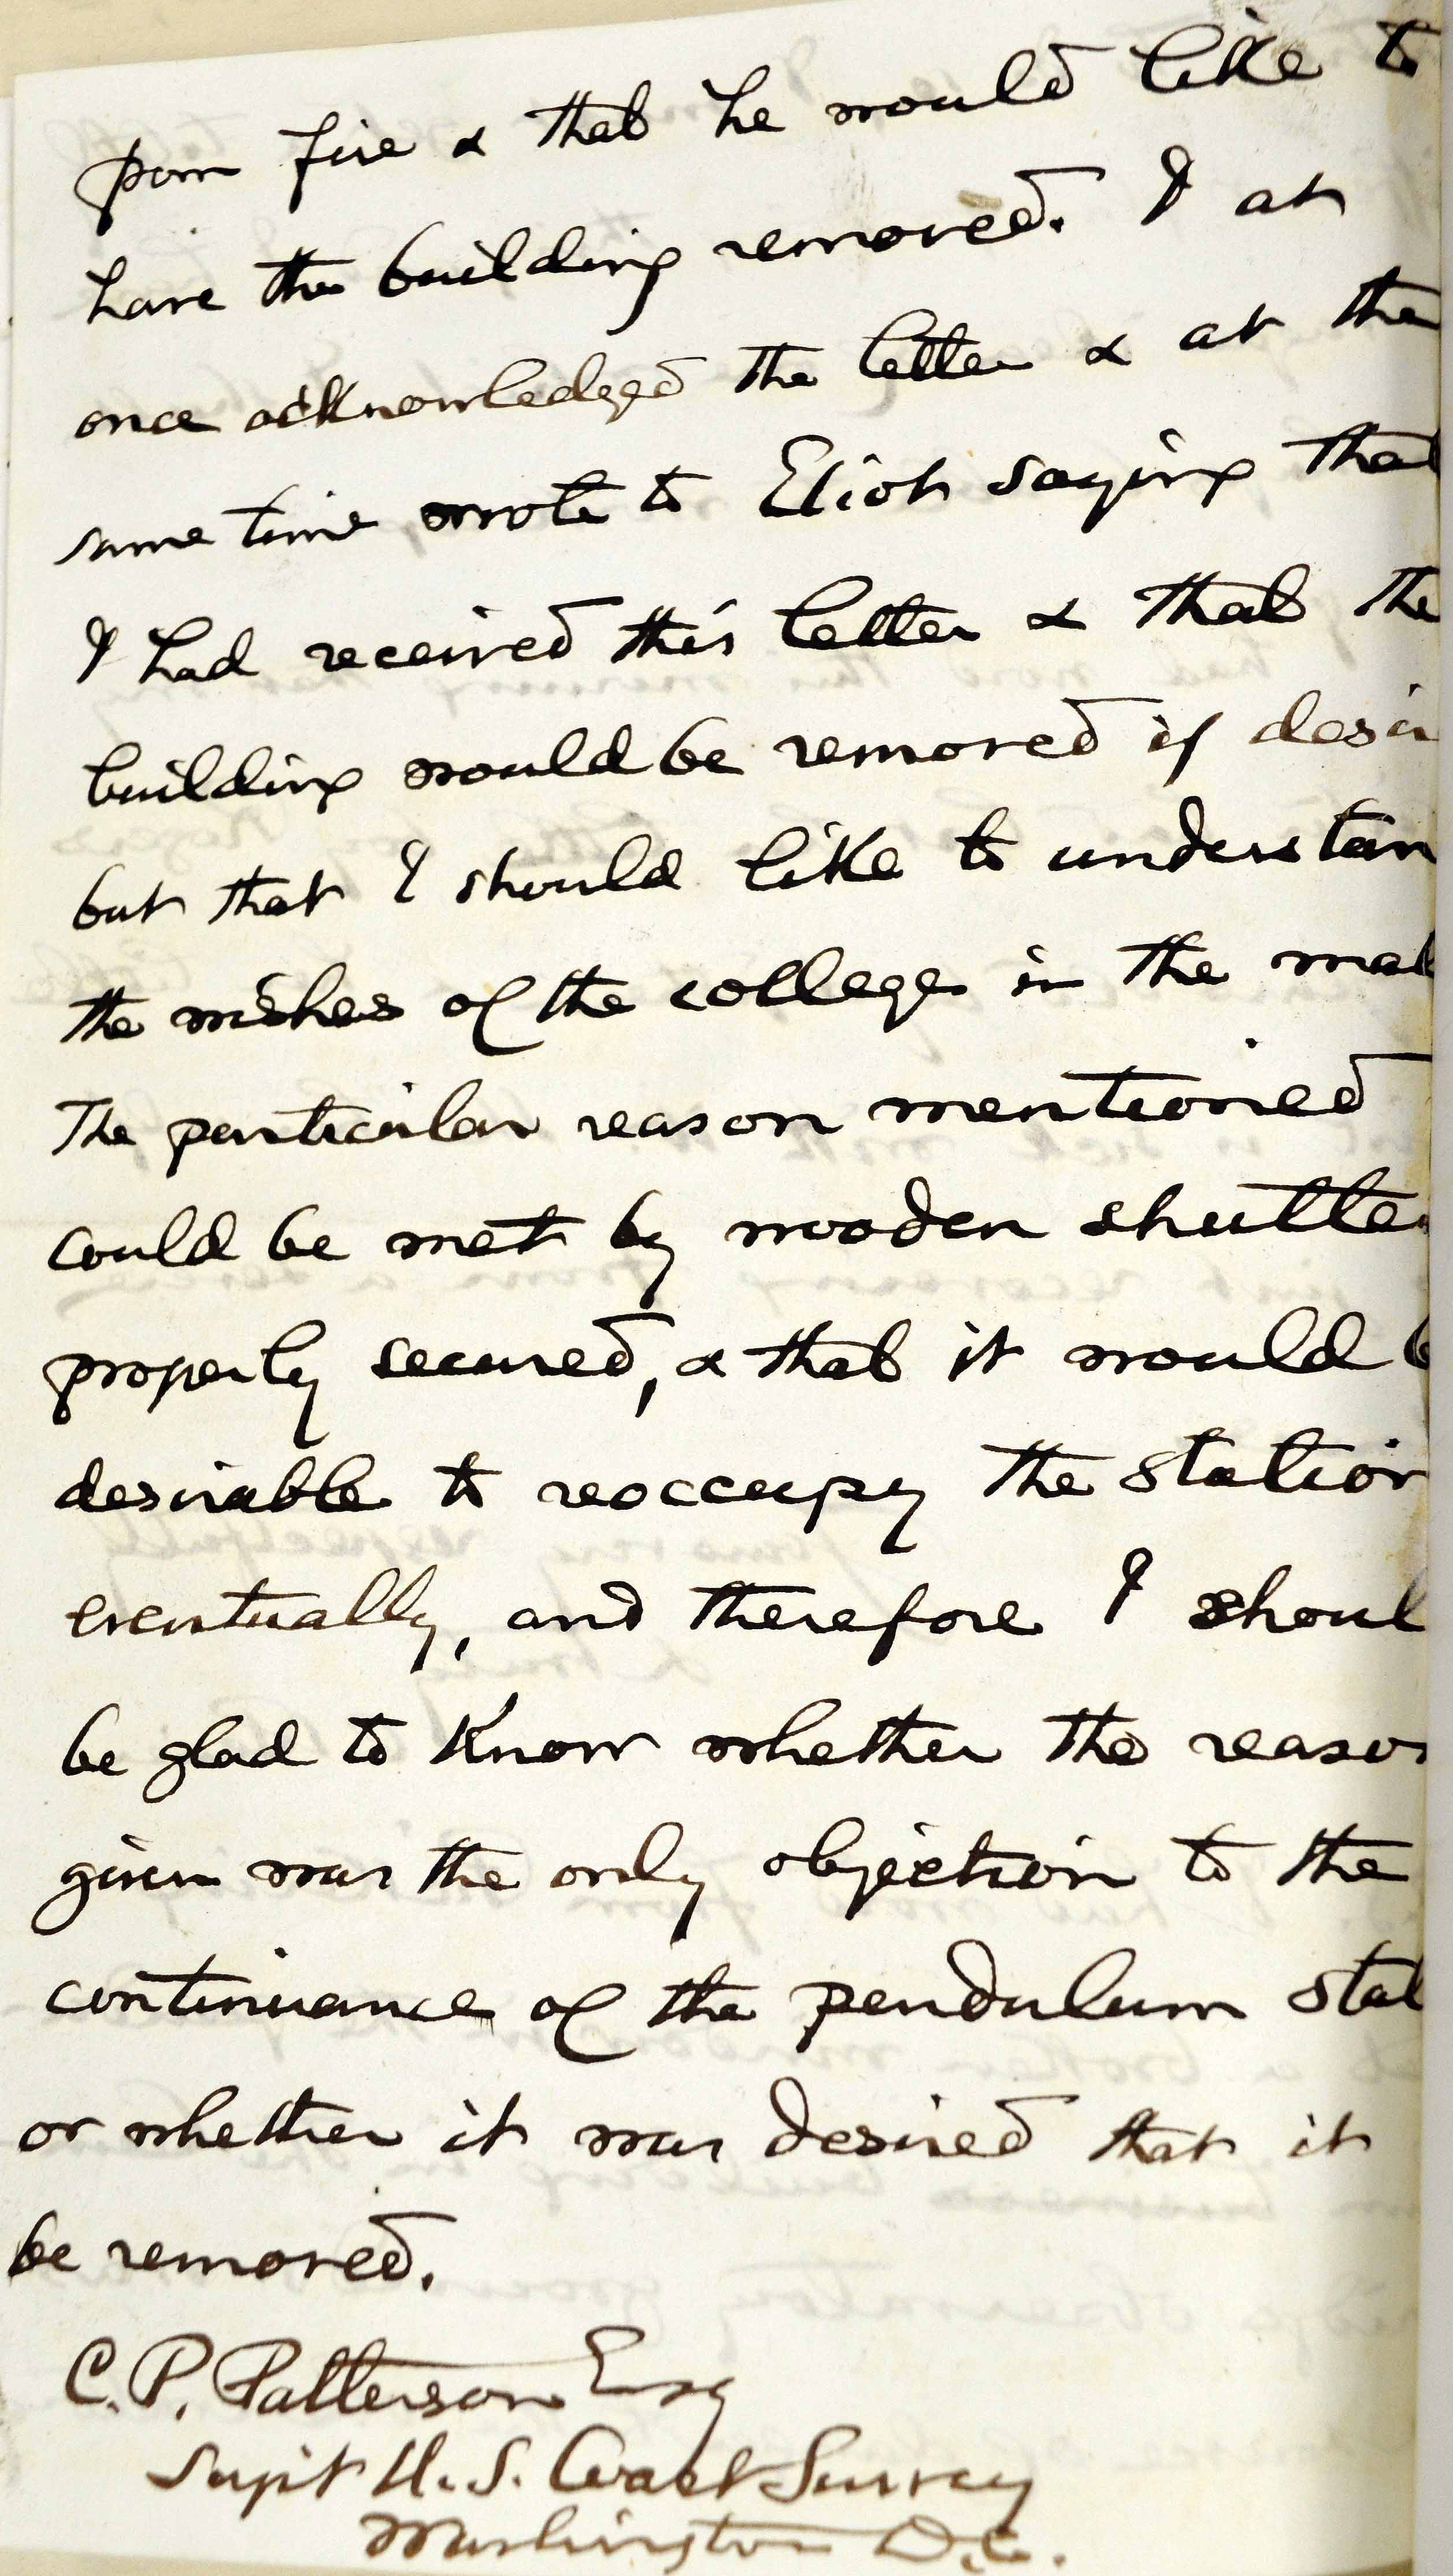 from fire & that he would like to
have the building removed. I at
once acknowledged the letter & at the
same time wrote to Eliot saying that
I had received this letter & that the
building would be removed if desir
but that I should like to understan
the wishes of the college in the mat
The particular reason mentioned
could be met by wooden shutter
properly secured, & that it would b
desirable to reoccupy the station
eventually, and therefore I shoul
be glad to know whether the reason
given was the only objection to the
continuance of the pendulum stat
or whether it was desired that it
be removed.
C. P. Patterson Esq
Supt U. S. Coast Survey
Washington D.C.